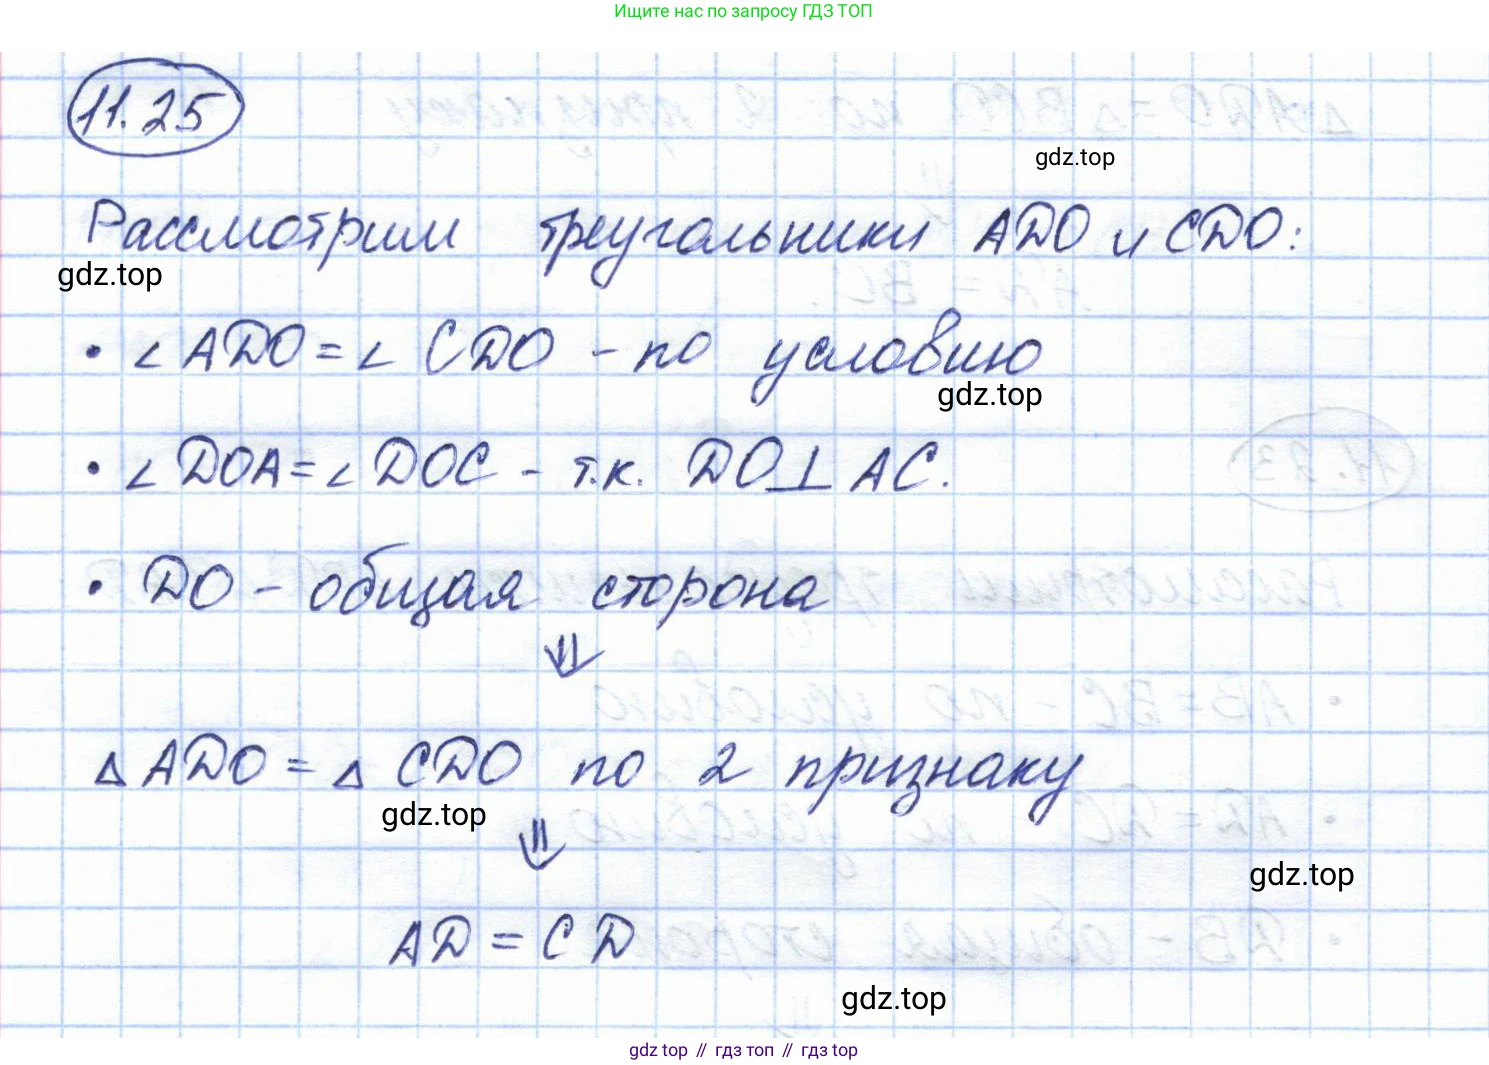 Ищите нас по запросу ГДЗ ТОП
11.25
gdz.top
Рассмотрим треугольники ADO и CDO:
gdz.top
• ∠ ADO = ∠ CDO - по условию
gdz.top
• ∠ DOA = ∠ DOC - т.к. DO ⊥ AC.
• DO - общая сторона
⇓
△ ADO = △ CDO по 2 признаку
gdz.top
⇓
gdz.top
AD = CD
gdz.top
gdz top // гдз топ // gdz top